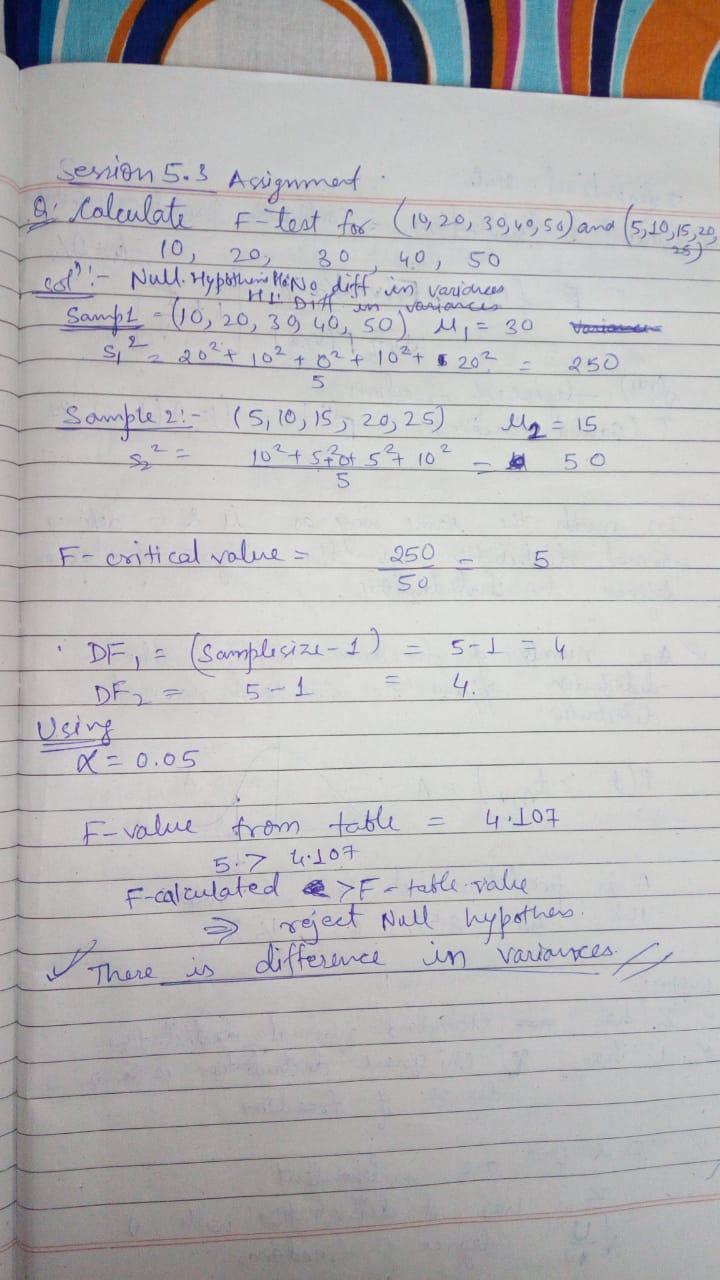 Session 5.3 Assignment.
Q: Calculate F-test for (10, 20, 30, 40, 50) and (5, 10, 15, 20, 25)
10, 20, 30, 40, 50
solⁿ:- Null. Hypothesis H0: No diff in variances
H1: Diff in variances
Samp1 = (10, 20, 30, 40, 50) μ₁ = 30 Variance
S₁² = 20² + 10² + 0² + 10² + 20² = 250
5
Sample 2:- (5, 10, 15, 20, 25) μ₂ = 15
S₂² = 10² + 5² + 0 + 5² + 10² = 50
5
F-critical value = 250 = 5
50
DF₁ = (Samplesize-1) = 5-1 = 4
DF₂ = 5-1 = 4.
Using
α = 0.05
F-value from table = 4.107
5 > 4.107
F-calculated > F-table value
⇒ reject Null hypothes.
✓ There is difference in variances. //